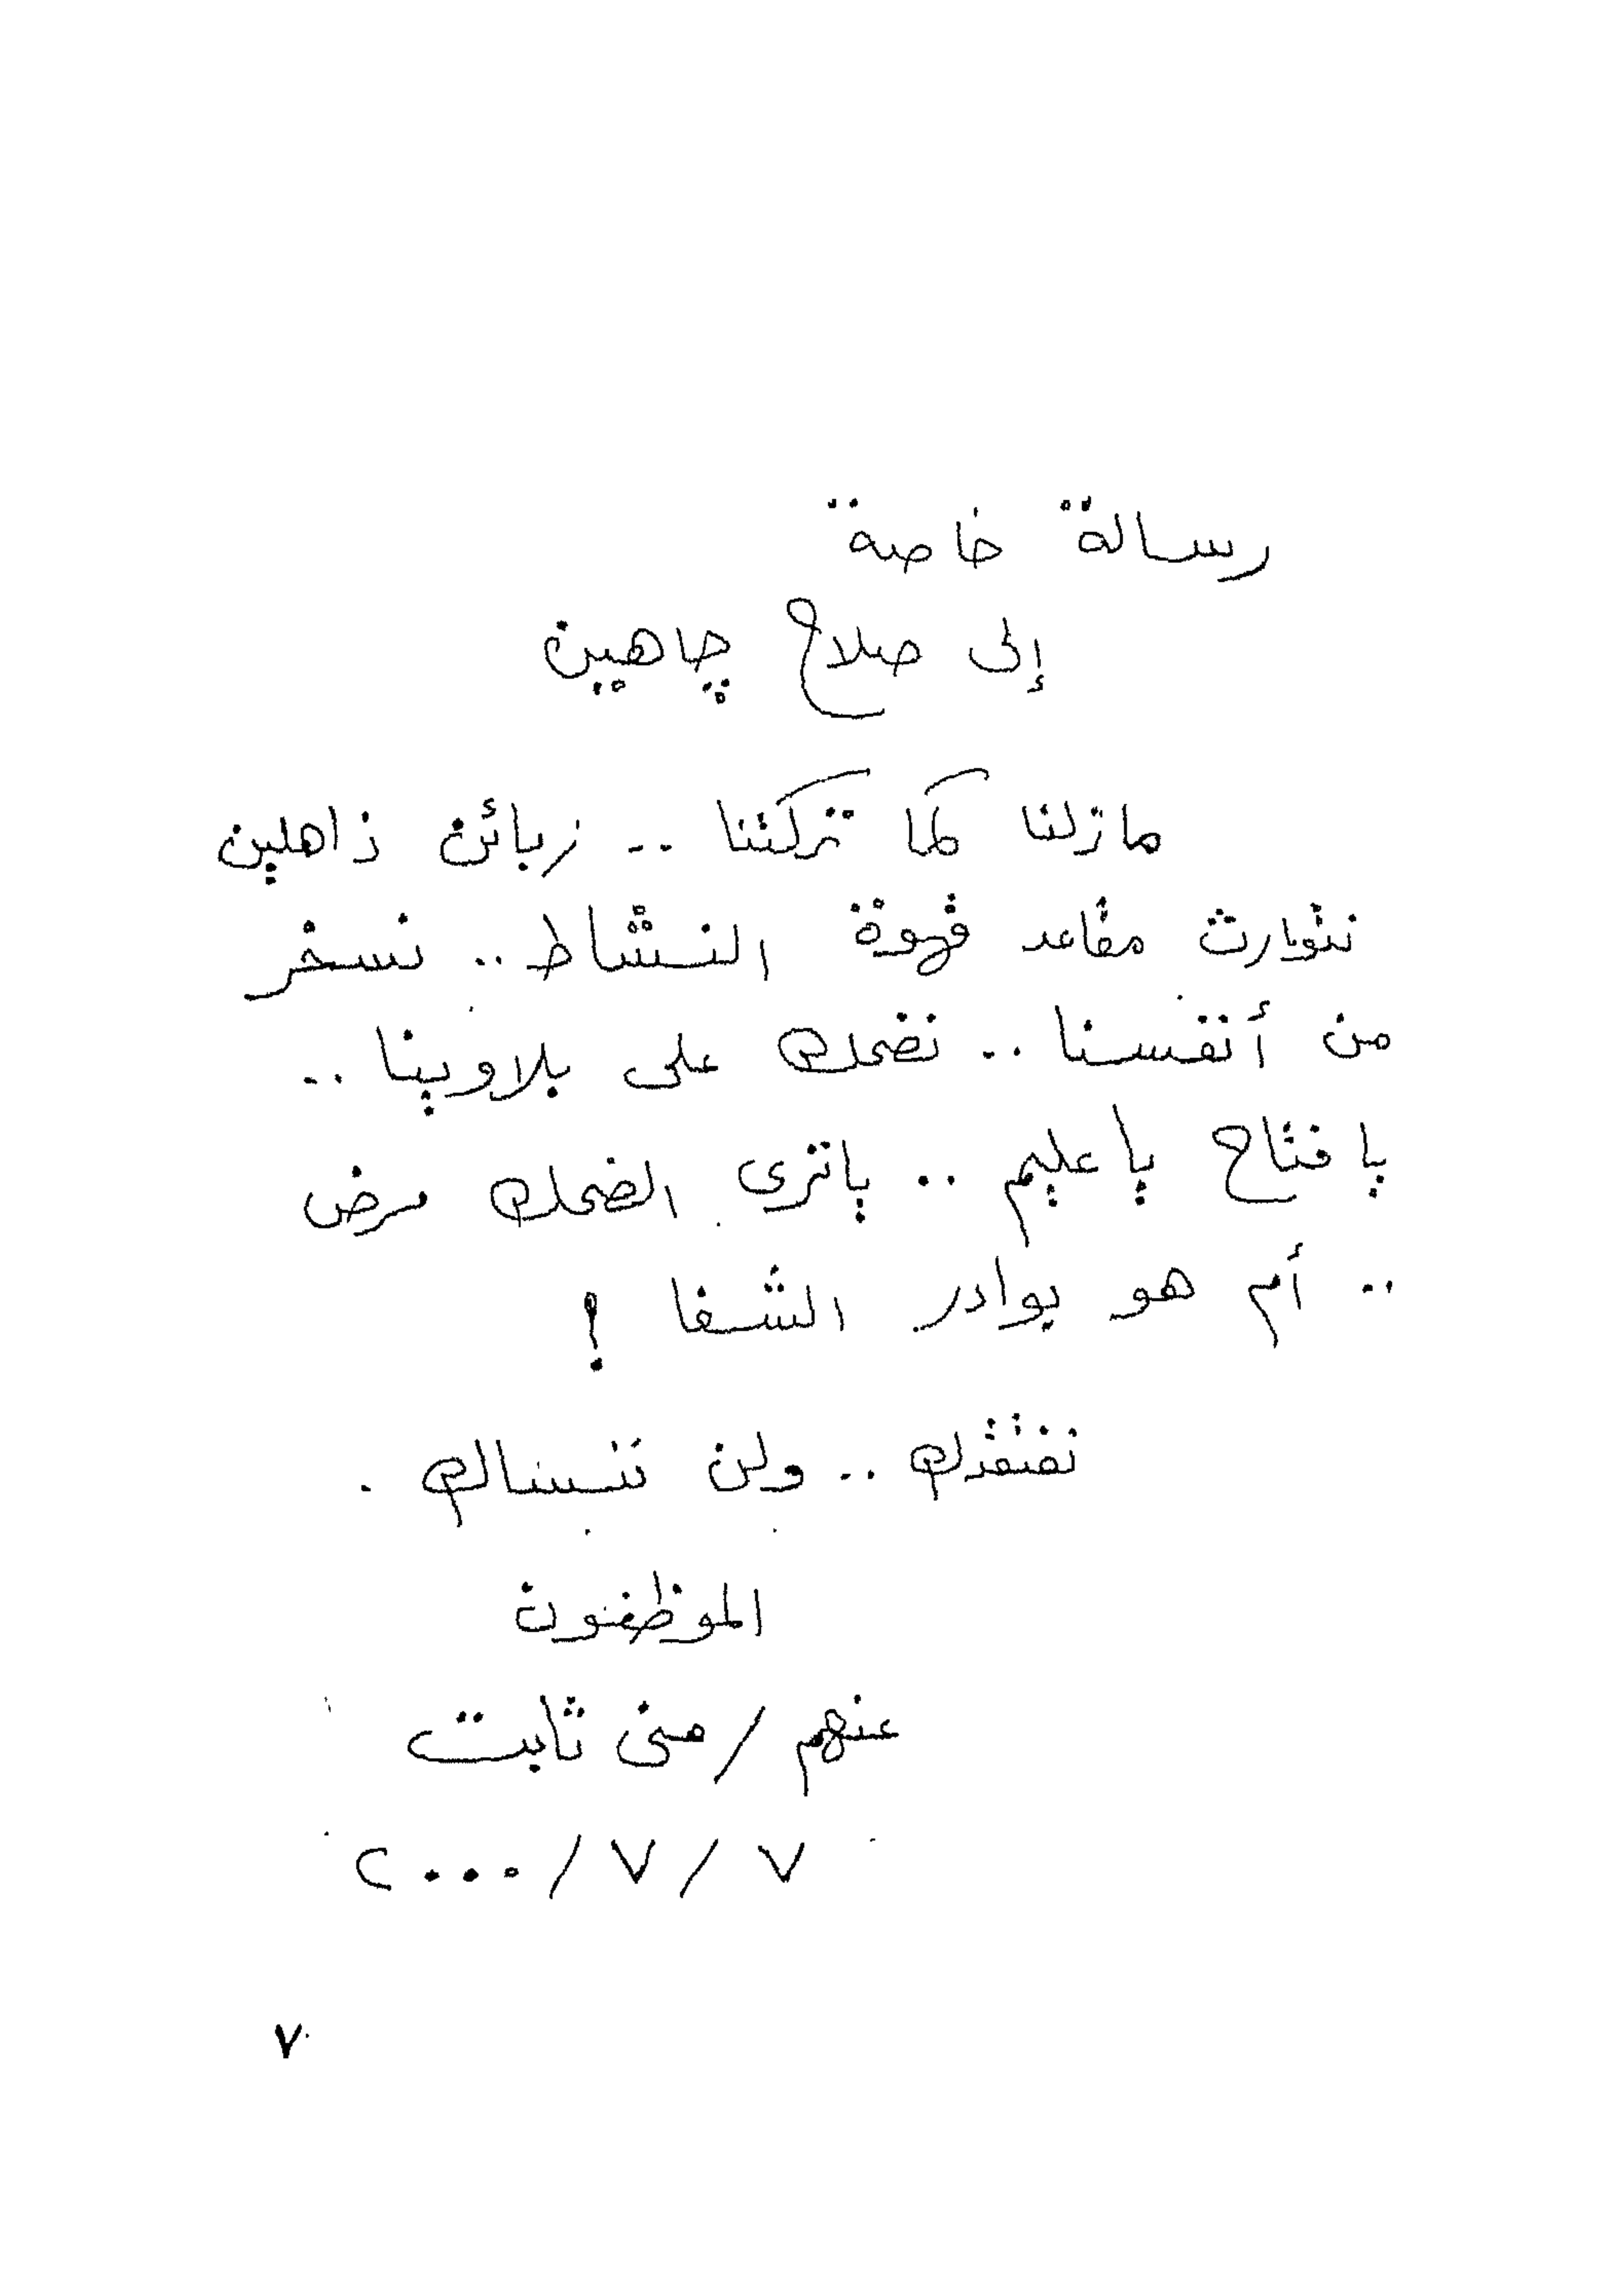 رسالة خاصة
إلى صلاح چاهين
مازلنا كما تركتنا .. زبائن ذاهلين
نتوارث مقاعد قهوة النشاط .. نسخر
من أنفسنا .. نضحك على بلاوينا ..
يا فتاح يا عليم .. ياترى الضحك مرض
.. أم هو بوادر الشفا !
نفتقدك .. ولن ننساك .
الموظفون
عنهم / منى ثابت
٧ / ٧ / ٢٠٠٠
٧